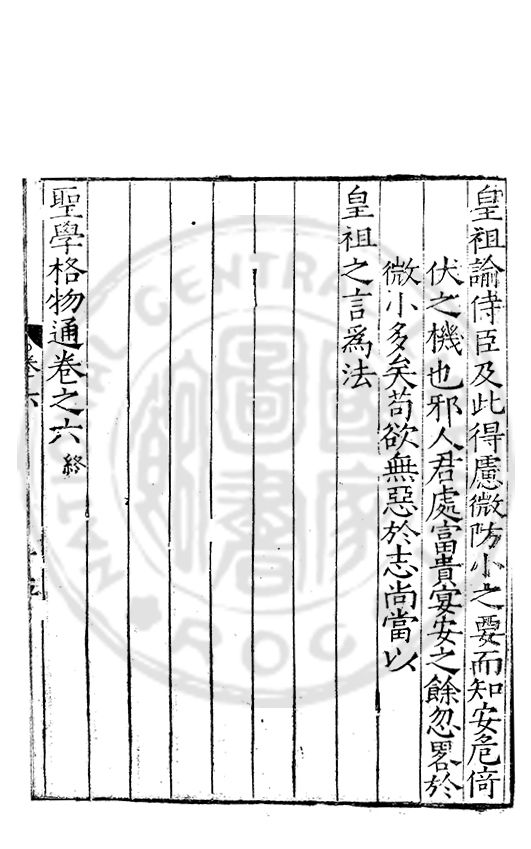 皇祖諭侍臣及此得慮微防小之要而知安危倚
伏之機也邪人君處富貴宴安之餘忽畧於
微小多矣苟欲無惡於志尚當以
皇祖之言爲法
聖學格物通卷之六 終
卷六
NATIONAL CENTRAL LIBRARY
ROC
國家圖書館